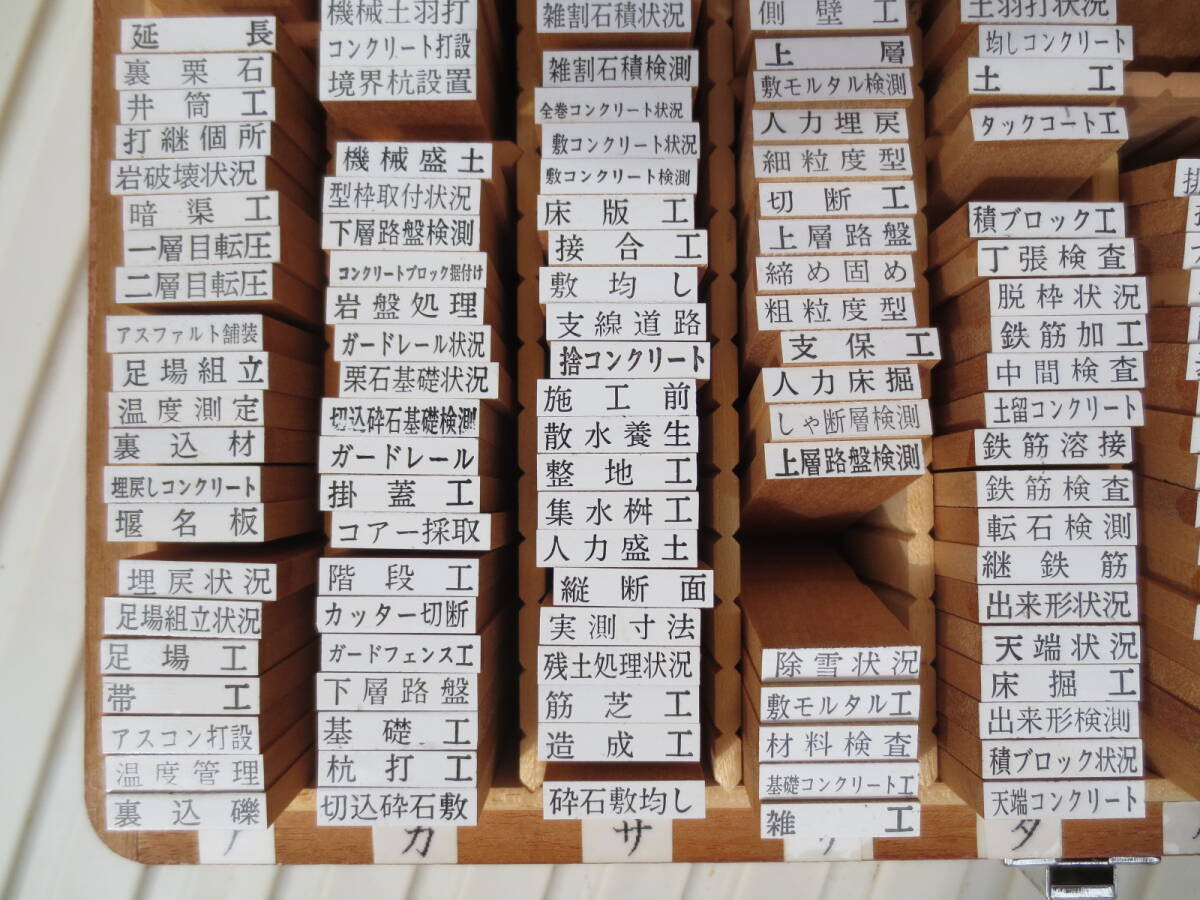 延長
裏栗石
井筒工
打継個所
岩破壊状況
暗渠工
一層目転圧
二層目転圧
アスファルト舗装
足場組立
温度測定
裏込材
埋戻しコンクリート
堰名板
埋戻状況
足場組立状況
足場工
帯工
アスコン打設
温度管理
裏込礫
機械土羽打
コンクリート打設
境界杭設置
機械盛土
型枠取付状況
下層路盤検測
コンクリートブロック据付け
岩盤処理
ガードレール状況
栗石基礎状況
切込砕石基礎検測
ガードレール
掛蓋工
コアー採取
階段工
カッター切断
ガードフェンス工
下層路盤
基礎工
杭打工
切込砕石敷
カ
雑割石積状況
雑割石積検測
全巻コンクリート状況
敷コンクリート状況
敷コンクリート検測
床版工
接合工
敷均し
支線道路
捨コンクリート
施工前
散水養生
整地工
集水桝工
人力盛土
縦断面
実測寸法
残土処理状況
筋芝工
造成工
砕石敷均し
サ
側壁工
上層
敷モルタル検測
人力埋戻
細粒度型
切断工
上層路盤
締め固め
粗粒度型
支保工
人力床掘
しゃ断層検測
上層路盤検測
除雪状況
敷モルタル工
材料検査
基礎コンクリート工
雑工
土羽打状況
均しコンクリート
土工
タックコート工
積ブロック工
丁張検査
脱枠状況
鉄筋加工
中間検査
土留コンクリート
鉄筋溶接
鉄筋検査
転石検測
継鉄筋
出来形状況
天端状況
床掘工
出来形検測
積ブロック状況
天端コンクリート
タ